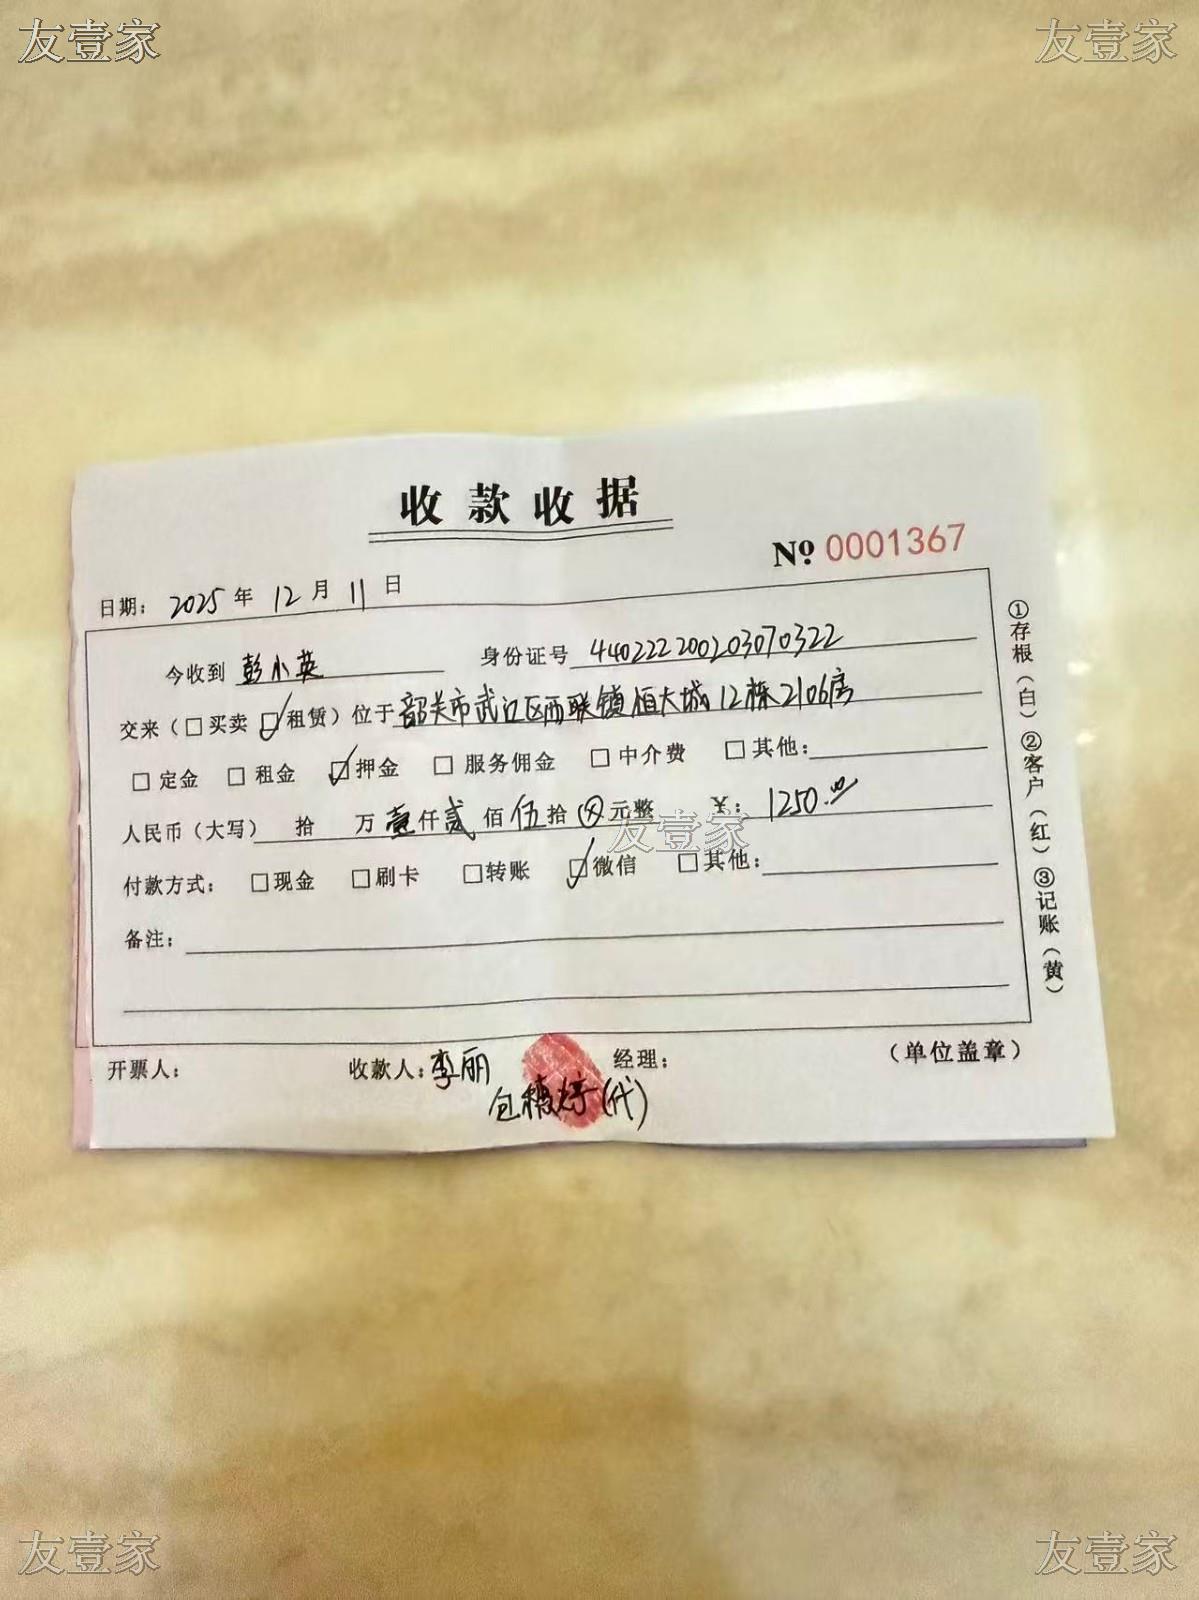 友壹家 友壹家
收款收据
Nº 0001367
日期: 2025 年 12 月 11 日
今收到 彭小英 身份证号 440222200203070322
交来(□买卖 ☑租赁)位于 韶关市武江区西联镇恒大城12栋2106房
□ 定金 □ 租金 ☑ 押金 □ 服务佣金 □ 中介费 □ 其他:
人民币(大写) 拾 万 壹 仟 贰 佰 伍 拾 ⊗ 元整 ¥: 1250.00
友壹家
付款方式: □现金 □刷卡 □转账 ☑微信 □其他:
备注:
开票人: 收款人: 李丽 经理: (单位盖章)
包穗婷(代)
①存根(白)②客户(红)③记账(黄)
友壹家 友壹家